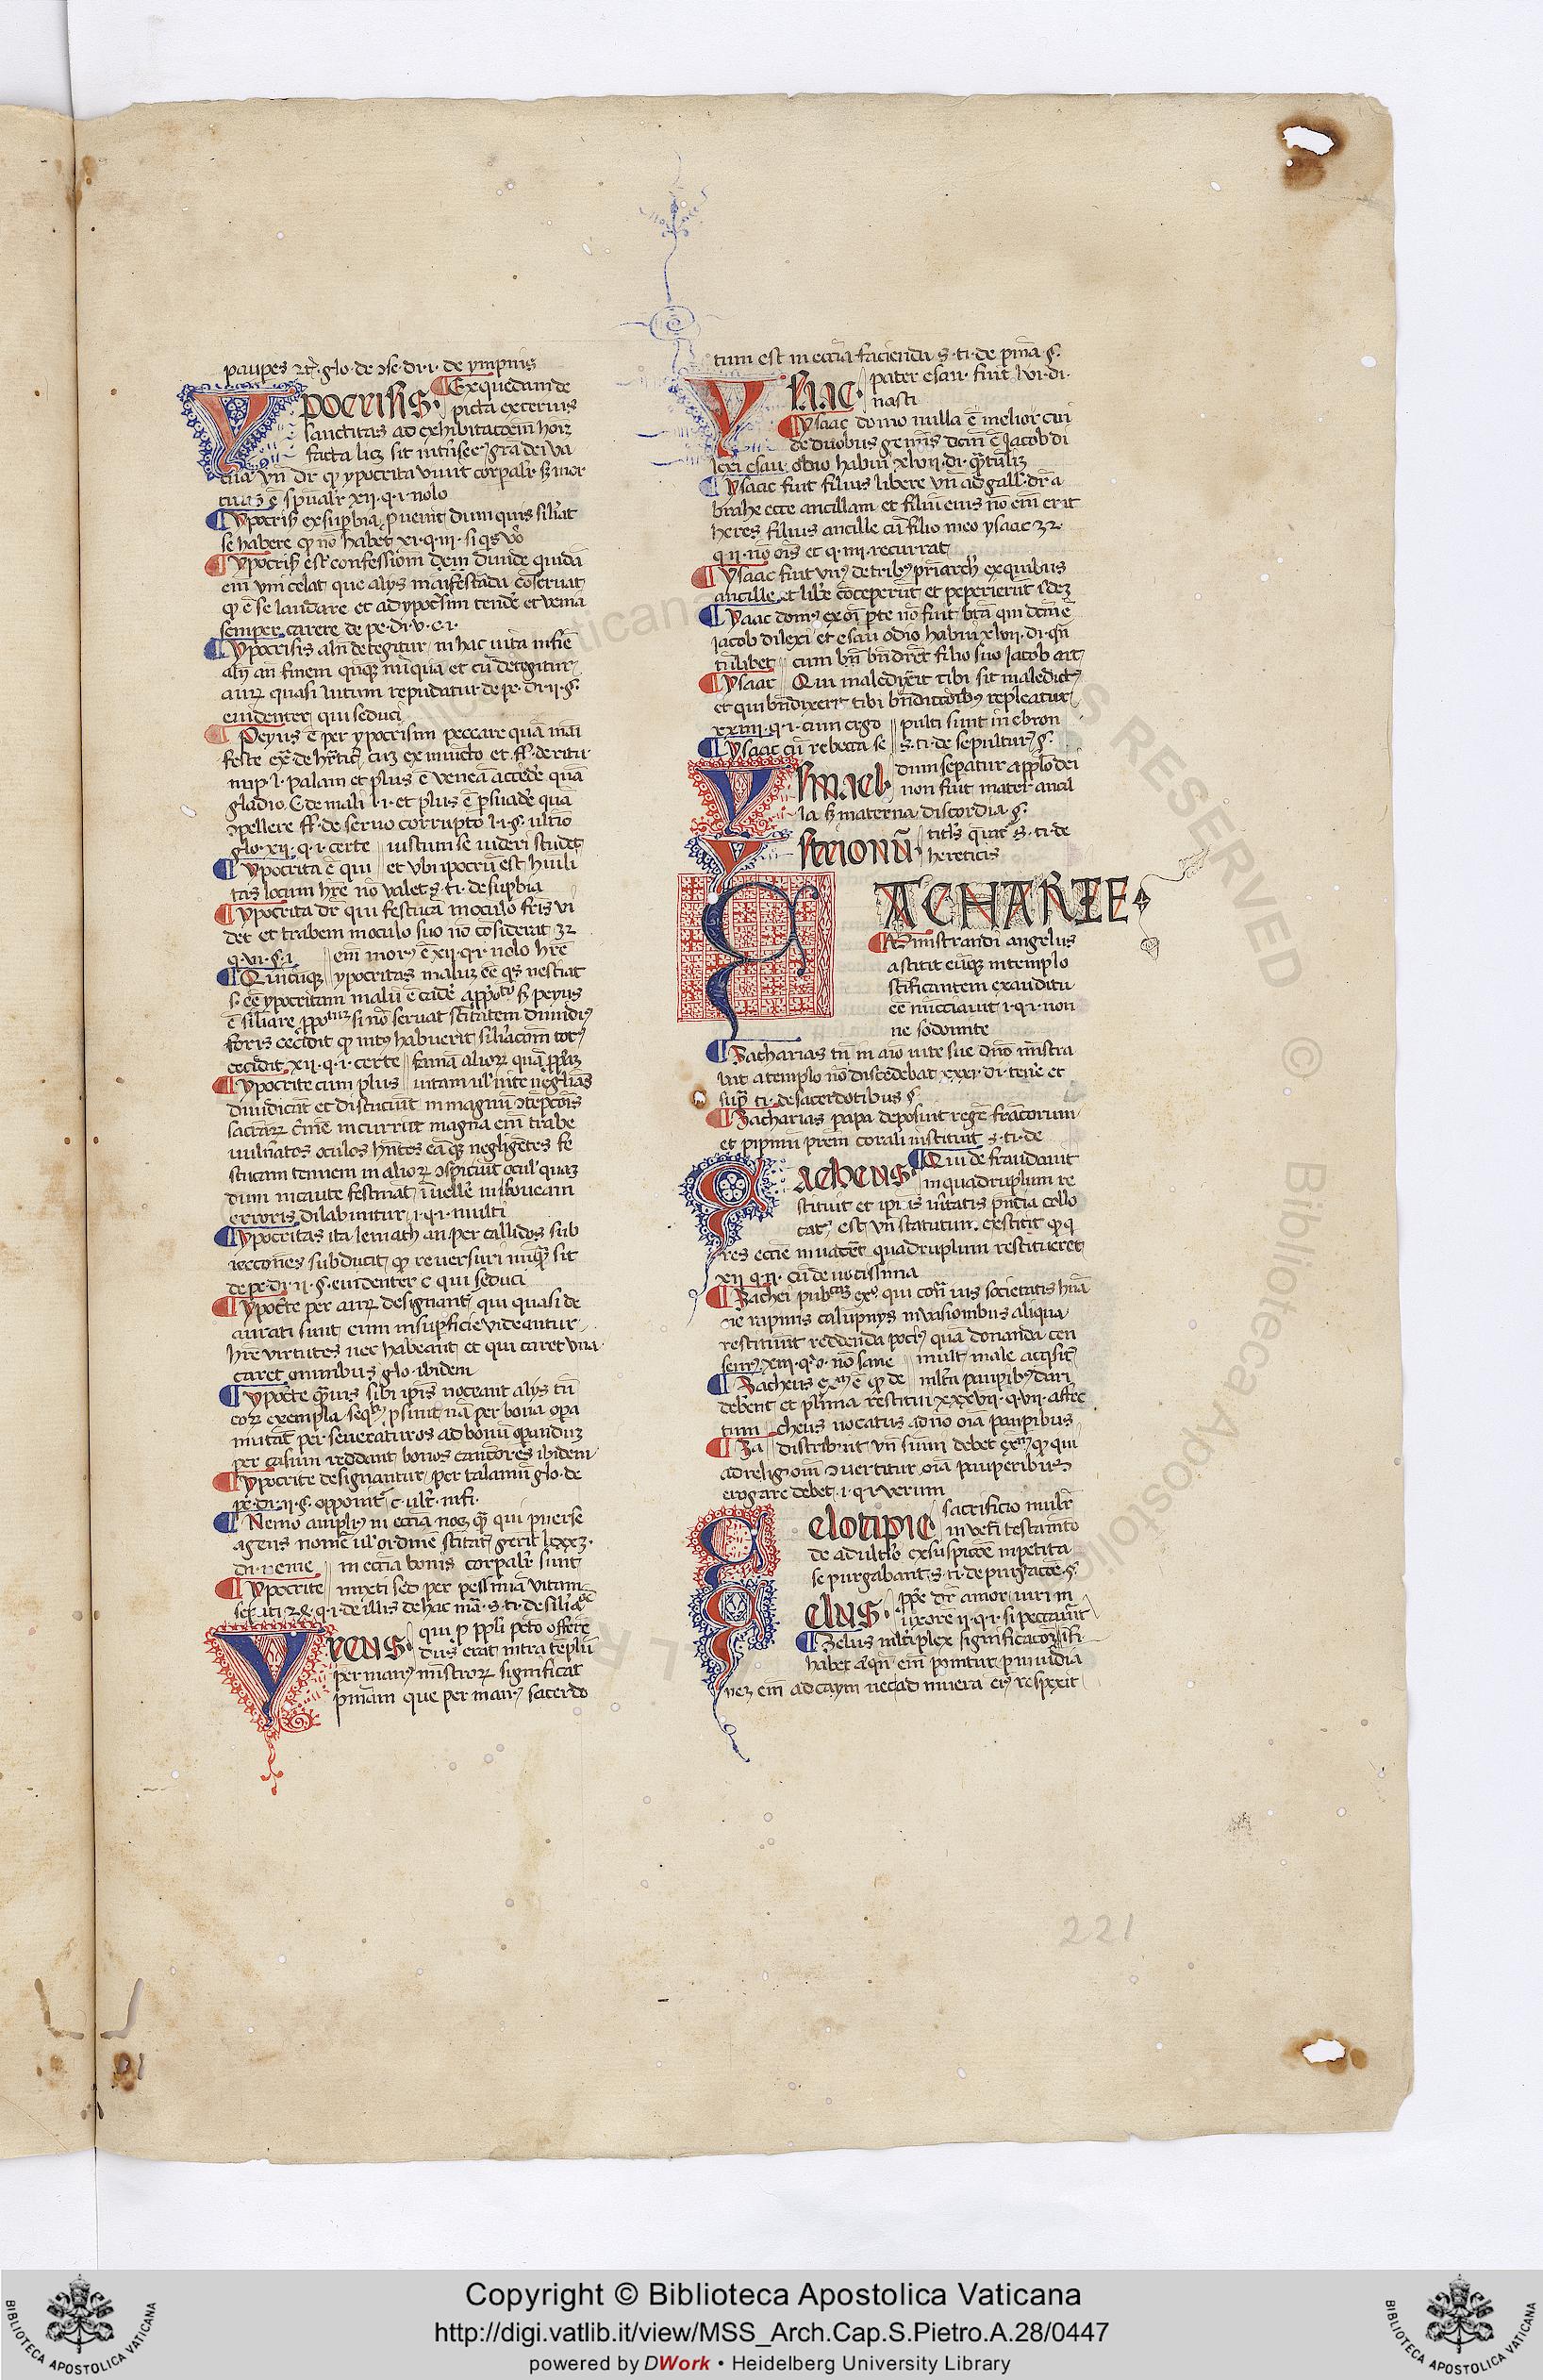 paupes ⁊c̄. glo. de ɔse. di. i. de ympnis
Ypocrisis. Ex quedam de
picta exterius
sanctitas ad exhibitatōem hoīz
facta licꝫ sit intrisece grā dei va
cua vn̄ dr̄ qꝫ ypocrita viuit corpalr̄ sꝫ mor
tuꝰ ē spūalr̄ xii. q. i. nolo
Ypocris̄ ex supbia puenit dum quis sil'at
se habere qꝫ nō habet xi. q. iii. si qs̄ vo
Ypocris̄ est confessiōm dem diuide quidā
em vni celat que alijs maifestādū cōseruat
qꝫ ē se laudare et ad ypoc̄sim tende et veniā
semper carere de pe. di. v. c. i.
Ypocrisis aln̄ detegitur in hac vita in fiē
aln̄ an finem qn̄qꝫ nūqua et cū detegitur
aurꝫ quasi lutum reputatur de pe. di. ii. §.
euidenter qui seduci
Peyus ē per ypocrisim peccare quā mai
feste ex̄. de hr̄ticis cuꝫ ex iniūcto et ff. de ritu
nup. l. palam et plus ē venenā accēde quā
gladio C. de mali. l. i. et plus ē psuade quā
ɔpellere ff. de seruo corrupto l. i. §. ultīo
glo. xii. q. i. certe iustum se uideri studet
Ypocrita ē qui et vbi ipocrīs est huili
tas locum hr̄e nō valet s. ti. de supbia
Ypocrita dr̄ qui festucā in oculo fr̄is vi
det et trabem in oculo suo nō cōsiderat 32
q. vi. §. i. em̄ morꝰ ē xii. q. i. nolo hr̄e
Quicūqꝫ ypocritas maluꝫ ee qs̄ nesciat
s. eē ypocritam malū ē cade a pposito sꝫ peyus
ē sil'are ppotuꝫ si nō seruat s̄citatem dimidiꝰ
foris cecidit qꝫ intꝰ habuerit sil'acōm totꝰ
cecidit xii. q. i. certe famā alioꝝ quā ppaꝫ
Ypocrite cum plus uitam ul' uite neglīas
diiudicāt et discuciūt in magnū ɔtēpcōis
sacrāꝝ crīme incurrūt magna em̄ trabe
uulnatos oculos hn̄tes eāqꝫ negligētes fe
stucam tenuem in alioꝝ ɔspiciūt ocul' quaꝫ
dum incaute festinat euelle in foueam
erroris dilabuntur i. q. i. multi
Ypocritas ita leuiath an. per callidos sub
iectōnes subducit qꝫ reuersuri nūqꝫ sit
de pe. di. ii. §. euidenter c. qui seduci
Ypoc̄te per aurꝫ designant qui quasi de
aurati sunt cum in supficie videantur
hr̄e virtutes nec habeant et qui caret vna
caret omnibus glo. ibidem
Ypoc̄te qm̄uis sibi ipīs noceant alijs tn̄
eoꝝ exempla seqn̄ psunt nā per bona opa
mutāt perseueraturos ad bonū opanduꝫ
per casum reddant bonos cautiores ibidem
Ypocrite designantur per talamū glo. de
pe. di. ii. §. opponit c. ult. infi.
Nemo ampliꝰ in ecc̄ia nocꝫ qꝫ qui puerse
agens nomē ul' ordinē s̄citat gerit lxxxꝫ.
di. neme in ecc̄ia bonis corpalr̄ sunt
Ypocrite mixti sed per pessimā vitam
sepati 24. q. i. de illis de hac mā. s. ti. de sil'acōe
Yreus. qui p ppli pctō offerē
dus erat intra tēplū
per manꝰ ministroꝝ significat
pniam que per manꝰ sacerdo
tum est in ecc̄ia facienda s. ti. de pnia §.
Ysaac. pater esau fuit lvi. di.
nasci
Ysaac domo nulla ē melior cui
de duobus gemīs dcm̄ ē Jacob di
lexi esau odio habui xlvii. di. qn̄tuliꝫ
Ysaac fuit filius libere vn̄ ad gall' dr̄ a
brahe ecce ancillam et filiū eius nō em̄ erit
heres filius ancille cū filio meo ysaac 32.
q. ii. nō ois et q. iiii. recurrat
Ysaac fuit vnꝰ de tribꝰ priarch ex quibus
ancille et lib'e cōceperūt et pepererūt ibideꝫ
Ysaac domꝰ ex oī pte nō fuit btā qui dcm̄ ē
Jacob dilexi et esau odio habui xlvii. di. qn̄
tūlibet cum bn̄ bn̄diret filio suo Jacob ait
Ysaac Qui maledixerit tibi sit maledictꝰ
et qui bn̄dixerit tibi bn̄dictoibꝰ repleatur
xxiiii. q. i. cum ergo pulti sunt in ebron
Ysaac cū rebecca se s. ti. de sepulturꝰ §.
Ysmael. dum sepatur applo dei
non fuit mater ancil
la sꝫ materna discordia §.
Ystrionū. titl's q̄rat s. ti. de
hereticis
ZACHARIE.
Administrandi angelus
astitit eūqꝫ in templo
s̄cificantem exauditū
eē nūciauit i. q. i. non
ne sodomite
Zacharias tn̄ in aīo uite sue dn̄o mīstra
bat a templo nō discedebat xxxi. di. tene et
supꝰ ti. de sacerdotibus §.
Zacharias papa deposuit regē francorum
et pipinū prem coroali instituit s. ti. de
Zacheus. Qui de fraudauit
in quadruplum re
stituit et ipīus uitatis pn̄cia collo
cat est vn̄ statutum exstitit qꝫ q
res ecc̄ie inuacēt quadruplum restitueret
xii. q. ii. cū deuotissima
Zachei pub̄cās exo qui cont̄ ius societatis hūa
ne rapinis calūpnijs inuasionibus aliqua
restituūt reddenda pociꝰ quā donanda cen
semꝰ xiiii. q. v. nō sane mult male acqsit
Zacheus exm̄ ē qꝫ de ml'ta paupibꝰ dari
debent et plīma restitui xxxvii. q. vii. affec
tum cheus uocatus ad dn̄o oīa paupibus
Za distribuit vn̄ suum debet exm̄ qꝫ qui
ad religiōm ɔuertitur oīa pauperibus
erogare debet i. q. i. verum
Zelotipie sacrificio mulr̄
in vet̄i testamto
de adult'o ex suspicōe inpetita
se purgabant s. ti. de purgatōe §.
Zelus. ppe dr̄ amor viri in
uxorē ii. q. i. si peccauit
Zelus ml'tiplex significatōꝫ ibi
habet aliqn̄ em̄ ponitur p inuidia
neꝫ em̄ ad caym nec ad munera eiꝰ respexit
221
Copyright © Biblioteca Apostolica Vaticana
http://digi.vatlib.it/view/MSS_Arch.Cap.S.Pietro.A.28/0447
powered by DWork • Heidelberg University Library
BIBLIOTECA APOSTOLICA VATICANA
BIBLIOTECA APOSTOLICA VATICANA